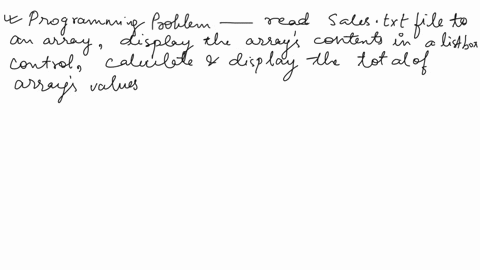 4 Programming Problem — read Sales.txt file to
an array, display the array's contents in a listbox
control, calculate & display the total of
array's values